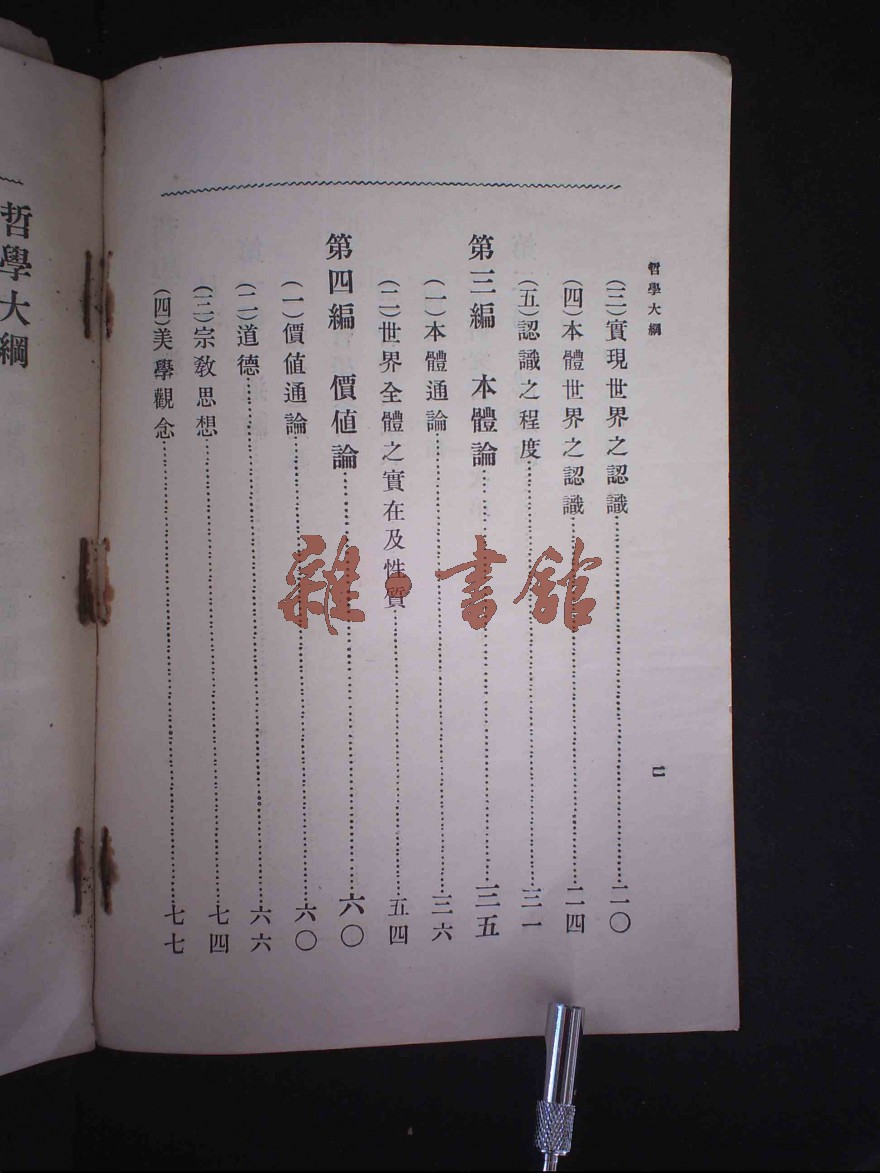 哲學大綱
(三)實現世界之認識……二〇
(四)本體世界之認識……二四
(五)認識之程度……三一
第三編 本體論……三五
(一)本體通論……三六
(二)世界全體之實在及性質……五四
第四編 價值論……六〇
(一)價值通論……六〇
(二)道德……六六
(三)宗教思想……七四
(四)美學觀念……七七
二
哲學大綱
雜·書館